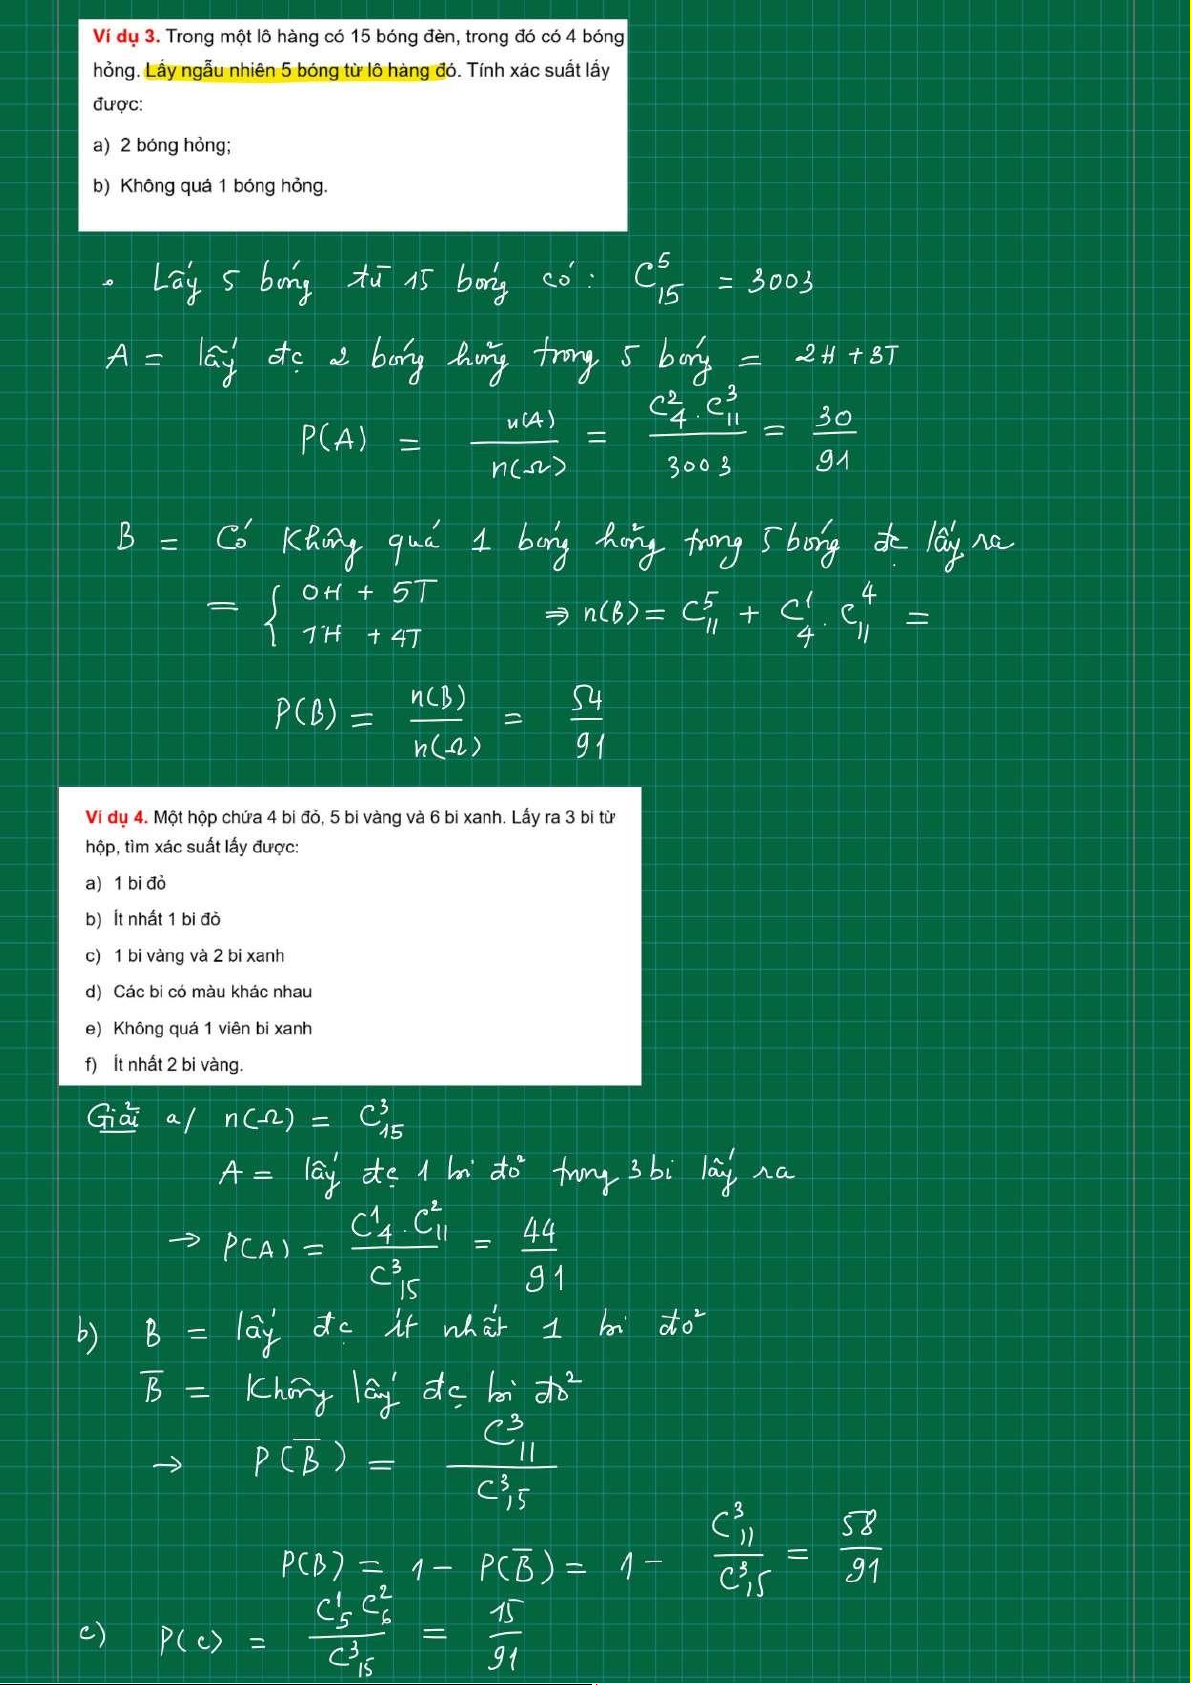 Ví dụ 3. Trong một lô hàng có 15 bóng đèn, trong đó có 4 bóng
hỏng. Lấy ngẫu nhiên 5 bóng từ lô hàng đó. Tính xác suất lấy
được:
a) 2 bóng hỏng;
b) Không quá 1 bóng hỏng.
• Lấy 5 bóng từ 15 bóng có : C⁵₁₅ = 3003
A = lấy đc 2 bóng hỏng trong 5 bóng = 2H + 3T
P(A) = n(A)/n(Ω) = C²₄ . C³₁₁ / 3003 = 30/91
B = Có không quá 1 bóng hỏng trong 5 bóng đc lấy ra
= { 0H + 5T
1H + 4T ⇒ n(B) = C⁵₁₁ + C¹₄ . C⁴₁₁ =
P(B) = n(B)/n(Ω) = 54/91
Ví dụ 4. Một hộp chứa 4 bi đỏ, 5 bi vàng và 6 bi xanh. Lấy ra 3 bi từ
hộp, tìm xác suất lấy được:
a) 1 bi đỏ
b) Ít nhất 1 bi đỏ
c) 1 bi vàng và 2 bi xanh
d) Các bi có màu khác nhau
e) Không quá 1 viên bi xanh
f) Ít nhất 2 bi vàng.
Giải a/ n(Ω) = C³₁₅
A = lấy đc 1 bi đỏ trong 3 bi lấy ra
→ P(A) = C¹₄ . C²₁₁ / C³₁₅ = 44/91
b) B = lấy đc ít nhất 1 bi đỏ
B̅ = Không lấy đc bi đỏ
→ P(B̅) = C³₁₁ / C³₁₅
P(B) = 1 - P(B̅) = 1 - C³₁₁ / C³₁₅ = 58/91
c) P(C) = C¹₅ C²₆ / C³₁₅ = 15/91